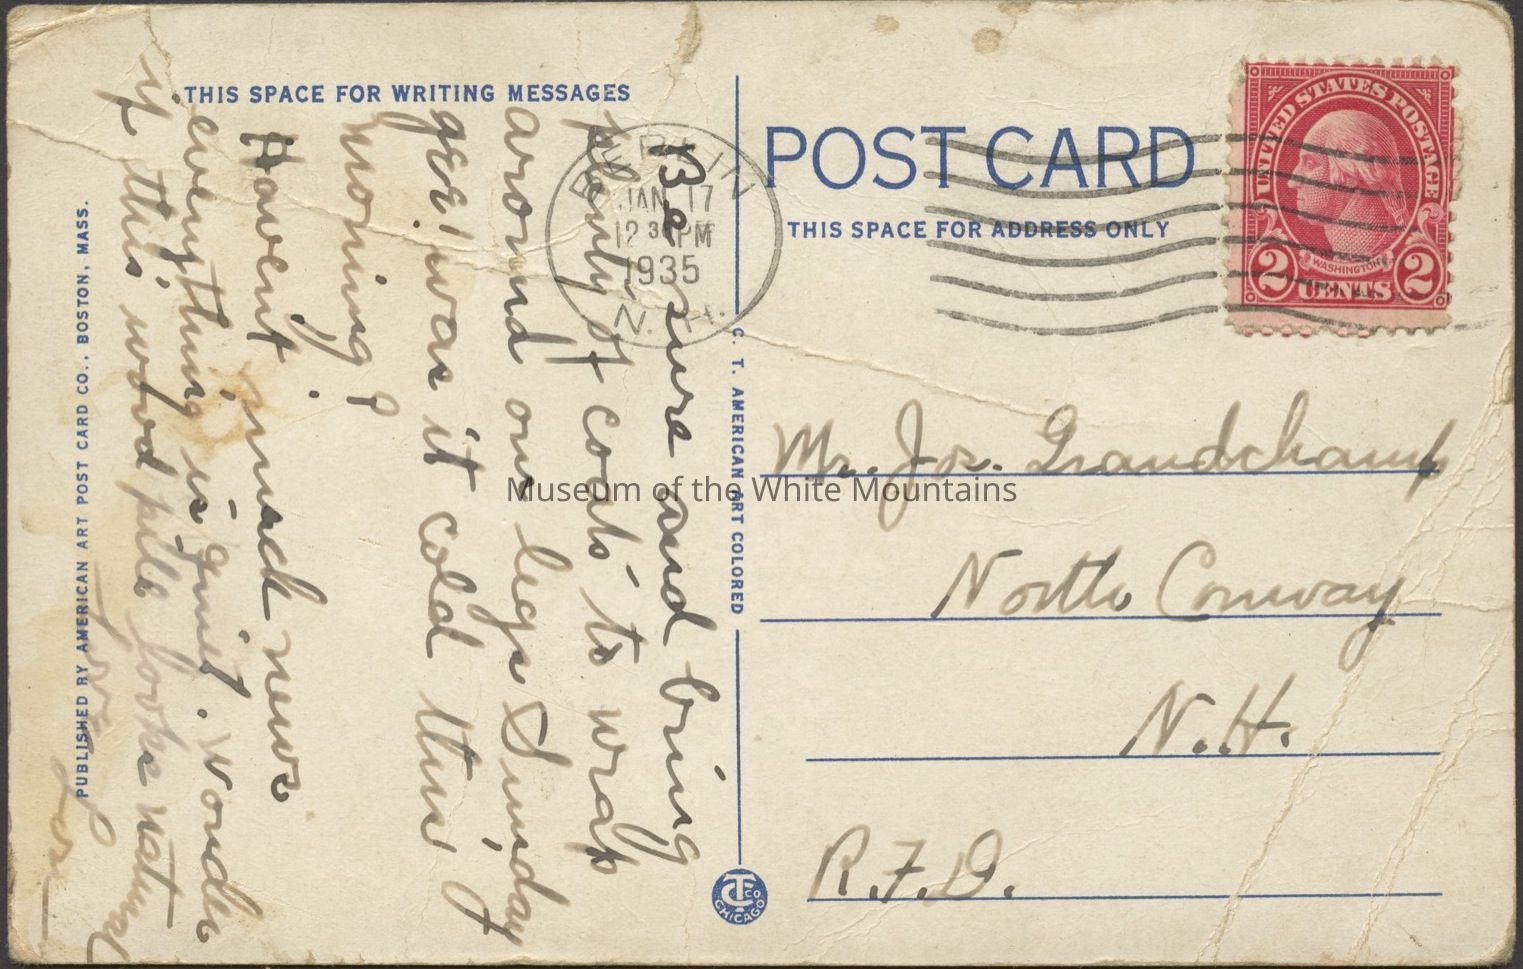 THIS SPACE FOR WRITING MESSAGES
Be sure and bring
plenty of coats to wrap
around our legs Sunday
gee! was it cold this
moning?
Havent much news
everything is quiet. Wonder
if this wood pile looks natural
Love
PUBLISHED BY AMERICAN ART POST CARD CO., BOSTON, MASS.
BERLIN
JAN 17
12 30 PM
1935
N.H.
C. T. AMERICAN ART COLORED
POST CARD
THIS SPACE FOR ADDRESS ONLY
UNITED STATES POSTAGE
WASHINGTON
2 CENTS 2
Mr. Jos. Grandchamp
North Conway
N.H.
R.F.D.
CT CO
CHICAGO
Museum of the White Mountains